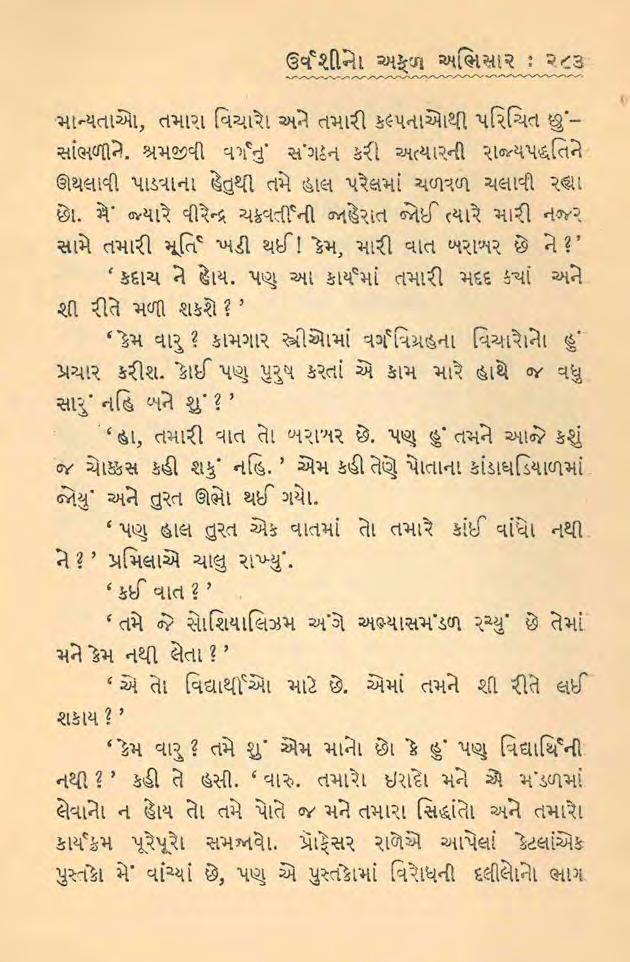 ઉર્વશીનો અફળ અભિસાર : ૨૮૩
માન્યતાઓ, તમારા વિચારો અને તમારી કલ્પનાઓથી પરિચિત છું–
સાંભળીને. શ્રમજીવી વર્ગનું સંગઠન કરી અત્યારની રાજ્યપદ્ધતિને
ઊથલાવી પાડવાના હેતુથી તમે હાલ પરેલમાં ચળવળ ચલાવી રહ્યા
છો. મેં જ્યારે વીરેન્દ્ર ચક્રવર્તીની જાહેરાત જોઈ ત્યારે મારી નજર
સામે તમારી મૂર્તિ ખડી થઈ! કેમ, મારી વાત બરાબર છે ને?’
‘કદાચ ને હોય. પણ આ કાર્યમાં તમારી મદદ ક્યાં અને
શી રીતે મળી શકશે?’
‘કેમ વારુ? કામગાર સ્ત્રીઓમાં વર્ગવિગ્રહના વિચારોનો હું
પ્રચાર કરીશ. કોઈ પણ પુરુષ કરતાં એ કામ મારે હાથે જ વધુ
સારું નહિ બને શું?’
‘હા, તમારી વાત તો બરાબર છે. પણ હું તમને આજે કશું
જ ચોક્કસ કહી શકું નહિ.’ એમ કહી તેણે પોતાના કાંડાઘડિયાળમાં
જોયું અને તુરત ઊભો થઈ ગયો.
‘પણ હાલ તુરત એક વાતમાં તો તમારે કાંઈ વાંધો નથી
ને?’ પ્રમિલાએ ચાલુ રાખ્યું.
‘કઈ વાત?’
‘તમે જે સોશિયાલિઝમ અંગે અભ્યાસમંડળ રચ્યું છે તેમાં
મને કેમ નથી લેતા?’
‘એ તો વિદ્યાર્થીઓ માટે છે. એમાં તમને શી રીતે લઈ
શકાય?’
‘કેમ વારુ? તમે શું એમ માનો છો કે હું પણ વિદ્યાર્થિની
નથી?’ કહી તે હસી. ‘વારુ. તમારો ઇરાદો મને એ મંડળમાં
લેવાનો ન હોય તો તમે પોતે જ મને તમારા સિદ્ધાંતો અને તમારો
કાર્યક્રમ પૂરેપૂરો સમજાવો. પ્રૉફેસર રાળેએ આપેલાં કેટલાંએક
પુસ્તકો મેં વાંચ્યાં છે, પણ એ પુસ્તકોમાં વિરોધની દલીલોનો ભાગ